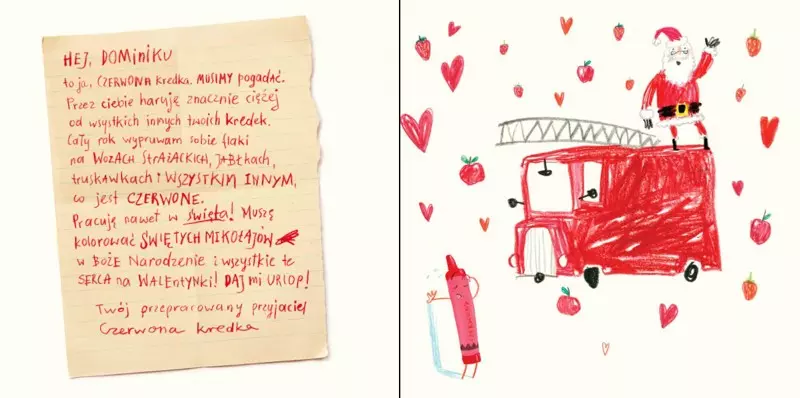 HEJ, DOMINIKU
to ja, CZERWONA kredka. MUSIMY pogadać.
Przez ciebie haruję znacznie ciężej
od wszystkich innych twoich kredek.
Cały rok wypruwam sobie flaki
na WOZACH STRAŻACKICH, JABŁKACH,
truskawkach i WSZYSTKIM INNYM,
co jest CZERWONE.
Pracuję nawet w święta! Muszę
kolorować ŚWIĘTYCH MIKOŁAJÓW
w BOŻE NARODZENIE i wszystkie te
SERCA na WALENTYNKI! DAJ mi URLOP!
Twój przepracowany przyjaciel
Czerwona kredka